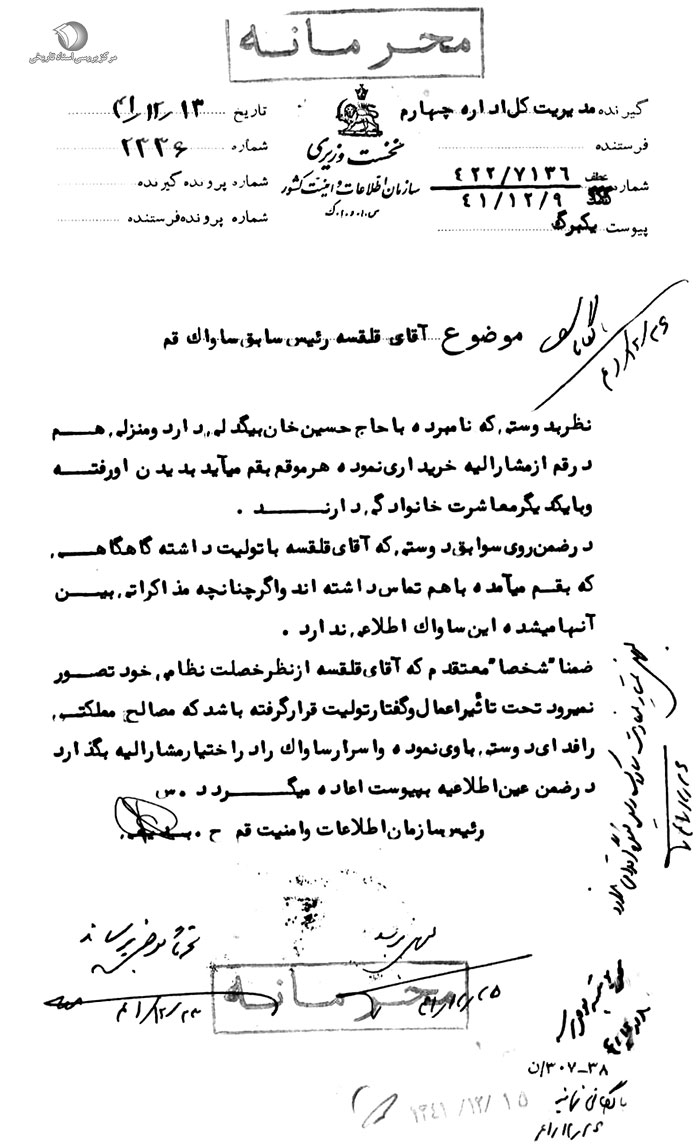 محرمانه
مرکز بررسی اسناد تاریخی
گیرنده مدیریت کل اداره چهارم
فرستنده
شماره عطف ۴۲۲/۷۱۳۶
۴۱/۱۲/۹
پیوست یکبرگ
نخست وزیری
سازمان اطلاعات و امنیت کشور
س.ا.و.ا.ک
تاریخ ۴۱/۱۲/۱۳
شماره ۲۳۳۶
شماره پرونده گیرنده
شماره پرونده فرستنده
موضوع آقای قلقسه رئیس سابق ساواک قم
۴۱/۱۲/۲۶
نظر بدوستی که نامبرده با حاج حسین خان بیگدلی دارد و منزلی هم
در قم از مشارالیه خریداری نموده هر موقع بقم میآید بدیدن او رفته
و با یکدیگر معاشرت خانوادگی دارند .
در ضمن روی سوابق دوستی که آقای قلقسه با تولیت داشته گاهگاهی
که بقم میآمده با هم تماس داشته اند و اگر چنانچه مذاکراتی بین
آنها میشده این ساواک اطلاعی ندارد .
ضمنا" شخصا" معتقدم که آقای قلقسه از نظر خصلت نظامی خود تصور
نمیرود تحت تاثیر اعمال و گفتار تولیت قرار گرفته باشد که مصالح مملکتی
را فدای دوستی با وی نموده و اسرار ساواک را در اختیار مشارالیه بگذارد
در ضمن عین اطلاعیه بپیوست اعاده میگردد . س
رئیس سازمان اطلاعات و امنیت قم ح .
محرمانه
۴۱/۱۲/۲۳
۳۰۷-۳۸/ن
۱۳۴۱/۱۲/۱۵
بایگانی
۴۱/۱۲/۲۶